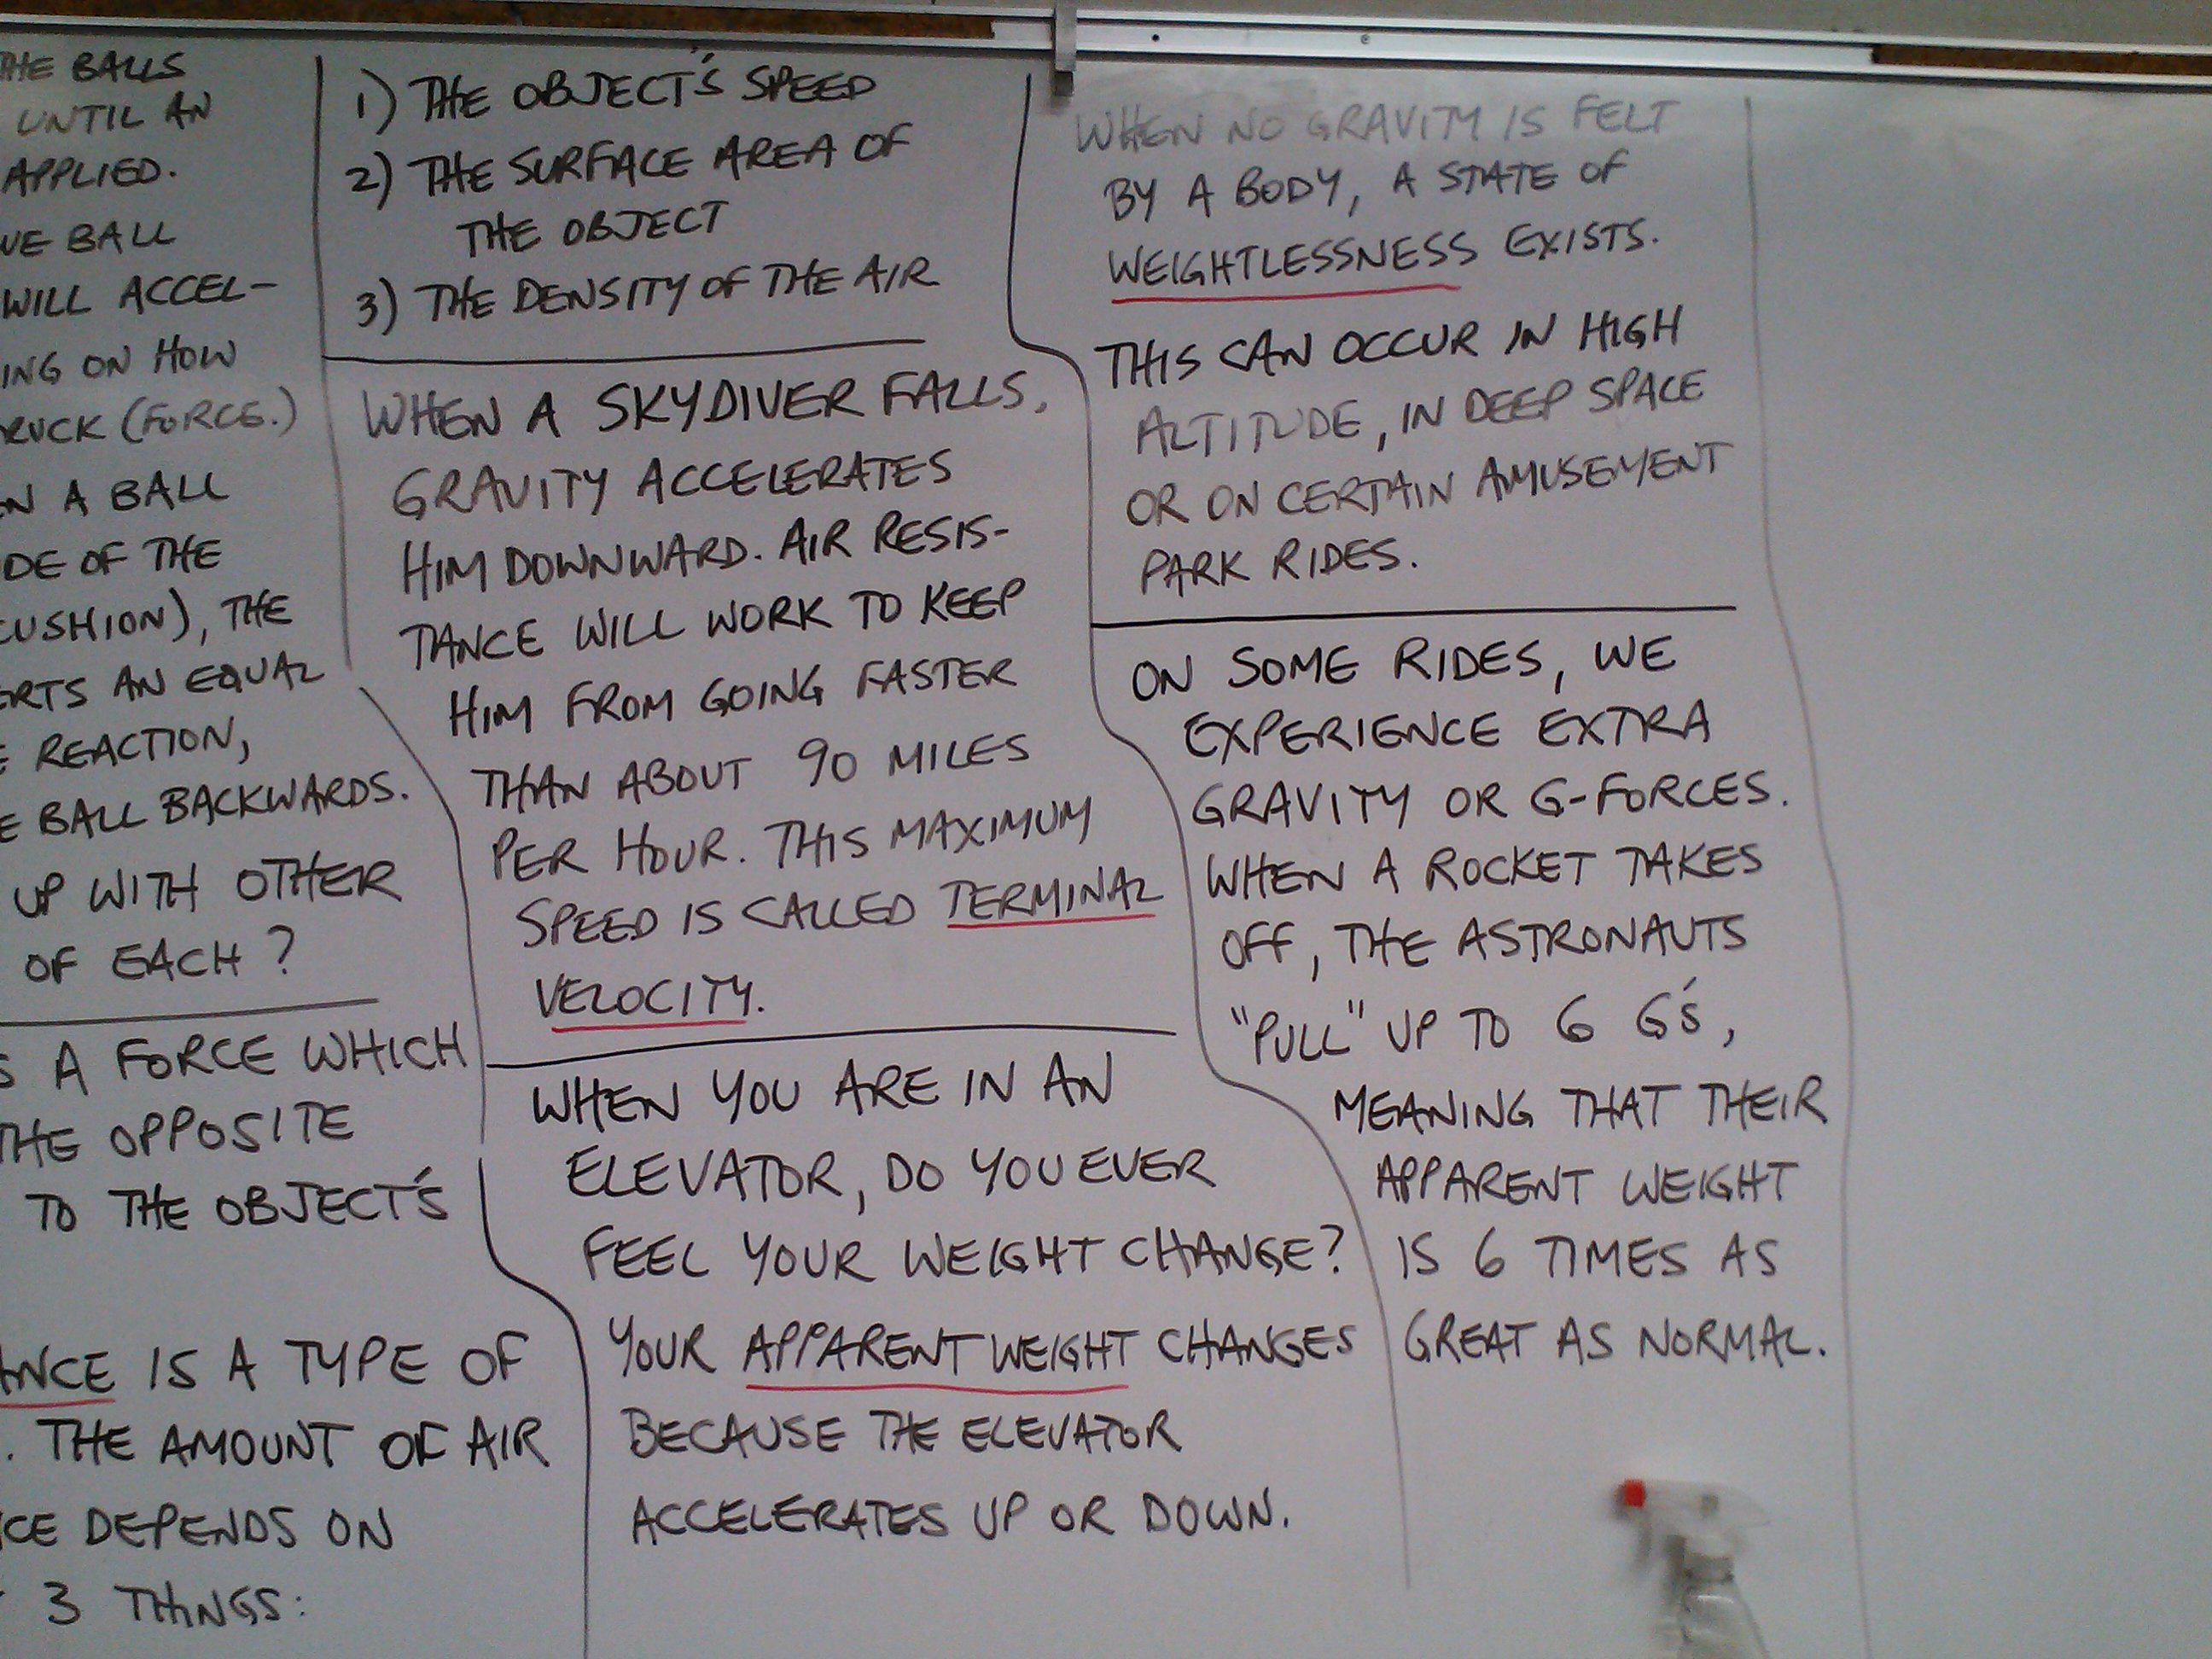 THE BALLS
UNTIL AN
APPLIED.
BALL
WILL ACCEL-
ING ON HOW
RUCK (FORCE.)
A BALL
DE OF THE
CUSHION), THE
ERTS AN EQUAL
REACTION,
BALL BACKWARDS.
UP WITH OTHER
OF EACH?
A FORCE WHICH
THE OPPOSITE
TO THE OBJECT'S
ANCE IS A TYPE OF
. THE AMOUNT OF AIR
CE DEPENDS ON
3 THINGS:
1) THE OBJECT'S SPEED
2) THE SURFACE AREA OF
THE OBJECT
3) THE DENSITY OF THE AIR
WHEN A SKYDIVER FALLS,
GRAVITY ACCELERATES
HIM DOWNWARD. AIR RESIS-
TANCE WILL WORK TO KEEP
HIM FROM GOING FASTER
THAN ABOUT 90 MILES
PER HOUR. THIS MAXIMUM
SPEED IS CALLED TERMINAL
VELOCITY.
WHEN YOU ARE IN AN
ELEVATOR, DO YOU EVER
FEEL YOUR WEIGHT CHANGE?
YOUR APPARENT WEIGHT CHANGES
BECAUSE THE ELEVATOR
ACCELERATES UP OR DOWN.
WHEN NO GRAVITY IS FELT
BY A BODY, A STATE OF
WEIGHTLESSNESS EXISTS.
THIS CAN OCCUR IN HIGH
ALTITUDE, IN DEEP SPACE
OR ON CERTAIN AMUSEMENT
PARK RIDES.
ON SOME RIDES, WE
EXPERIENCE EXTRA
GRAVITY OR G-FORCES.
WHEN A ROCKET TAKES
OFF, THE ASTRONAUTS
"PULL" UP TO 6 G'S,
MEANING THAT THEIR
APPARENT WEIGHT
IS 6 TIMES AS
GREAT AS NORMAL.